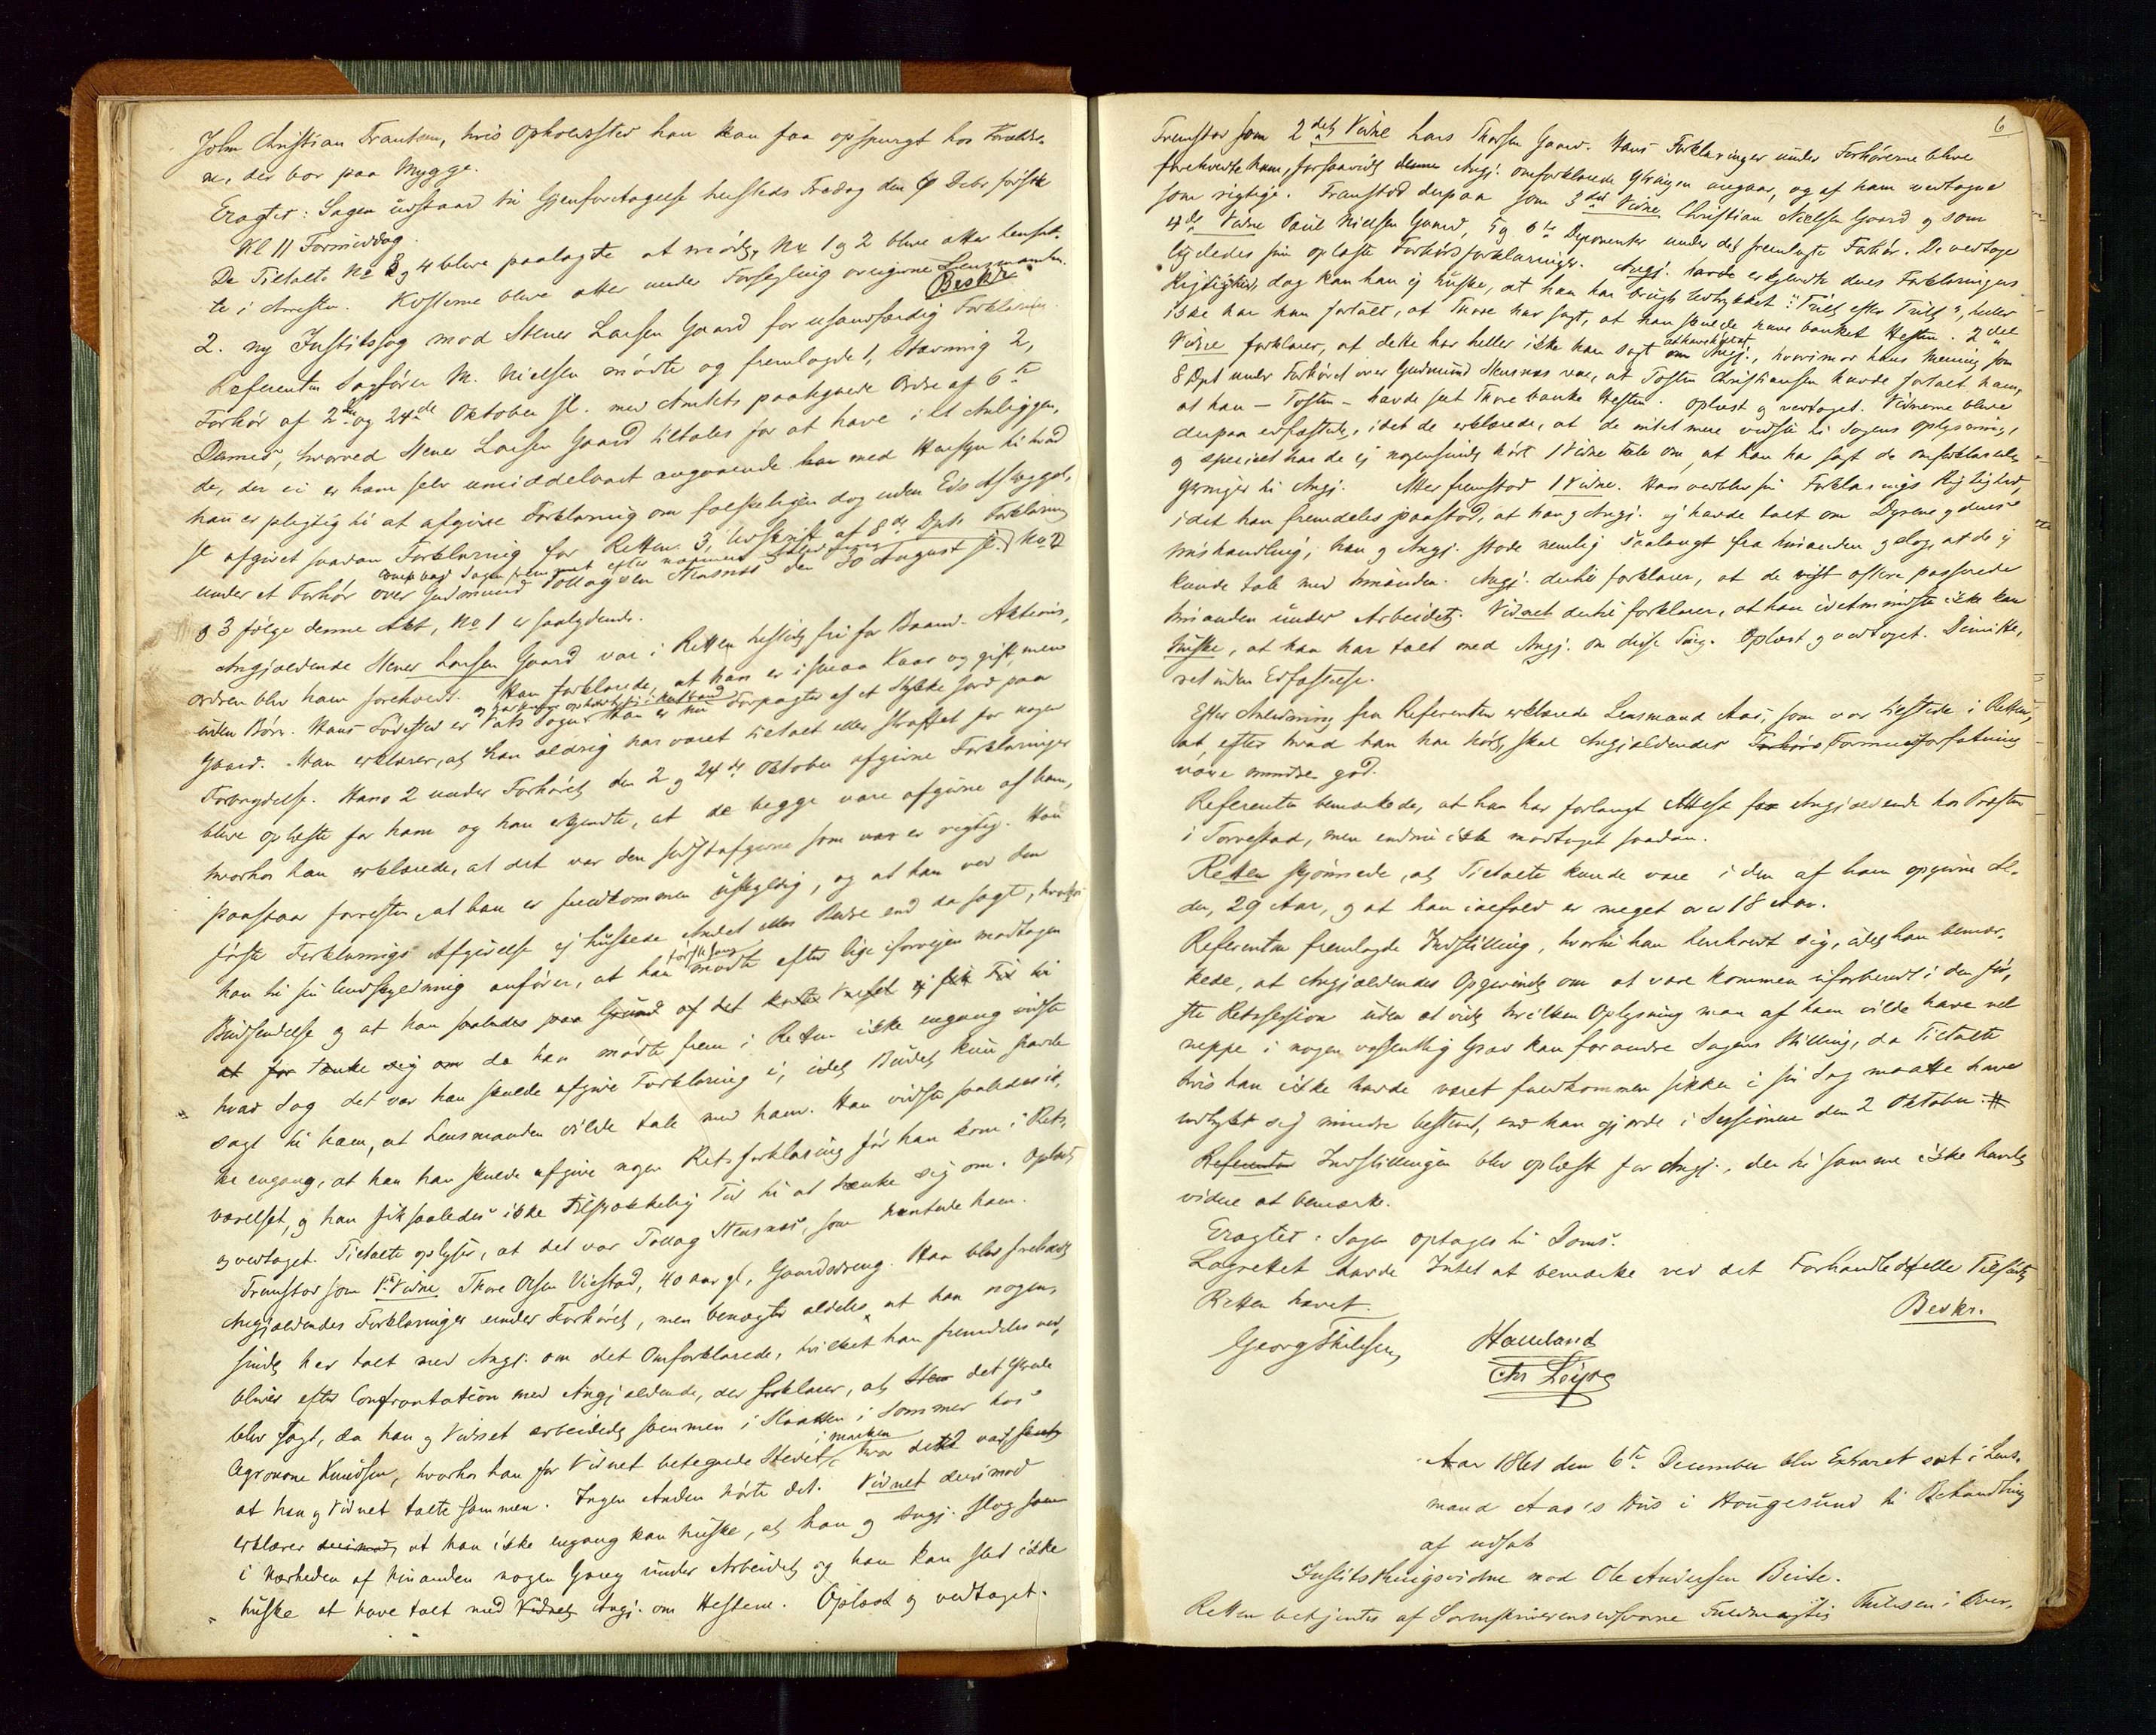 John Christian Frantsen, hvis Opholdssted han kan faa opspurgt hos Forældre-
ne, der bor paa Mygge.
Eragtet: Sagen udstaar til Gjenforetagelse hersteds Fredag den 6 Decbr førstk
Kl 11 Formiddag.
De Tiltalte No 3 og 4 bleve paalagte at møde, No 1 og 2 bleve atter hensat-
te i Arresten. Kosterne bleve atter under Forsegling overgivne Lensmanden.
Beskr.
2. ny Justitssag mod Stener Larsen Gaard for usandfærdig Forklaring
Referenten Sagfører M. Nielsen mødte og fremlagde 1, Stævning 2,
Forhør af 2den og 24de Oktober sl. med Amtets paategnede Ordre af 6te
Dennes, hvorved Stener Larsen Gaard tiltales for at have i et Anliggen,
de, der ei er ham selv umiddelbart angaaende med Hensyn til hvad
han er pligtig til at afgive Forklaring om foreskreven dog uden Eds Aflæggel,
se afgivet saadan Forklaring for Retten 3, Udskrift af 8de Dpts Forklaring
under et Forhør over Gudmund Tollagsen Stensnæs den 30 August sl. No 2
& 3 følge denne Akt, No 1 er saalydende.
Angjældende Stener Larsen Gaard var i Retten tilstede fri for Baand. Aktions,
ordren blev ham foreholdt. Han forklarede, at han er i smaa Kaar og gift, men
uden Børn. Hans Fødested er Vats Sogn. Han er nu Forpagter af et Stykke Jord paa
Gaard. Han erklærer, at han aldrig har været tiltalt eller straffet for nogen
Forbrydelse. Hans 2 under Forhøret den 2 og 24de Oktober afgivne Forklaringer
bleve oplæste for ham og han erkjendte, at de begge vare afgivne af ham,
hvorhos han erklærede, at det var den sidst afgivne som var er rigtig. Han
paastaar forresten, at han er fuldkommen uskyldig, og at han ved den
første Forklarings Afgivelse ej huskede Andet eller Bedre end da sagt, hvorfor
han til sin Undskyldning anfører, at han første Gang mødte efter lige iforveien modtagen
Budsendelse og at han saaledes paa Grund af det korte Varsel ej fik Tid til
at for tænke sig om da han mødte frem i Retten ikke engang vidste
hvad Sag det var han skulde afgive Forklaring i, idet Budet kun havde
sagt til ham, at Lensmanden vilde tale med ham. Han vidste saaledes ik,
ke engang, at han han skulde afgive nogen Retsforklaring før han kom i Rets,
værelset, og han fik saaledes ikke tilstrækkelig Tid til at tænke sig om. Oplæst
og vedtaget. Tiltalte oplyser, at det var Tollag Stensnæs, som hentede ham.
Fremstod som 1ste Vidne Thore Olsen Viestad, 40 aar gl, Gaardsdreng. Han blev forelæst
Angjældendes Forklaringer under Forhøret, men benægter aldeles at han nogen,
sinde har talt med Angj. om det Omforklarede, hvilket han fremdeles ved,
bliver efter Confrontation med Angjældende, der forklarer, at det skulde
blev sagt, da han og Vidnet arbeidede sammen i Slaatten i Sommer hos
Agronom Knudsen, hvorhos han for Vidnet betegnede Stedet i marken hvor dette var skeet
at han og Vidnet talte sammen. Ingen Anden hørte det. Vidnet derimod
erklærer derimod, at han ikke engang kan huske, at han og Angj. slog saa
i Nærheden af hinanden nogen Gang under Arbeidet og han kan slet ikke
huske at have talt med Vidnet Angj. om Hestene. Oplæst og vedtaget.
6
Fremstod som 2det Vidne Lars Thorsen Gaard. Hans Forklaringer under Forhørerne bleve
foreholdte ham, forsaavidt denne Angj. omforklarede Ytringen angaar, og af ham vedtagne
som rigtige. Fremstod derpaa som 3die Vidne Christian Nielsen Gaard og som
4de Vidne Paul Nielsen Gaard, 5 og 6te Deponenter under det fremlagte Forhør. De vedtoge
ligeledes sin oplæste Forhørsforklaringer. Angj. havde erkjendte deres Forklaringers
Rigtighed, dog kan han ej huske, at han har brugt Udtrykket: "Trilt efter Trilt", heller
ikke har han fortalt, at Thore har sagt, at han skulde have banket Hesten. 2det
Vidne forklarer, at dette har heller ikke han sagt om Angj., hvorimod hans Mening som
8 Dpt under Forhøret over Gudmund Stensnæs var, at Tosten Christiansen havde fortalt ham,
at han - Tosten - havde seet Thore banke Hesten. Oplæst og vedtaget. Vidnerne bleve
derpaa edfæstede, idet de erklærede, at de intet mere vidste til Sagens Oplysning,
og specielt har de ej nogensinde hørt 1 Vidne tale om, at han har sagt de omforklarede
Ytringer til Angj. Atter fremstod 1 Vidne. Han vedblev sin Forklarings Rigtighed,
idet han fremdeles paastod, at han og Angj. ej havde talt om Dyrene og deres
mishandling; han og Angj. stode nemlig saalangt fra hinanden og slog, at de ej
kunde tale med hinanden. Angj. dertil forklarer, at de vist oftere passerede
hinanden under Arbeidet. Vidnet dertil forklarer, at han idetmindste ikke kan
huske, at han har talt med Angj. om disse Ting. Oplæst og vedtaget. Dimitte,
ret uden Edfæstelse.
Efter Anledning fra Referenten erklærede Lensmand Aas, som var tilstede i Retten,
at, efter hvad han har hørt, skal Angjældendes Forhørs Formuesforfatning
være mindre god.
Referenten bemærkede, at han har forlangt Attest for Angjældende hos Præsten
i Torvestad, men endnu ikke modtaget saadan.
Retten skjønnede, at Tiltalte kunde være i den af ham opgivne Al-
der, 29 Aar, og at han ialfald er meget over 18 Aar.
Referenten fremlagde Indstilling, hvortil han henholdt sig, idet han bemær-
kede, at Angjældendes Opgivende om at være kommen uforberedt i den før,
ste Retssession uden at vide hvilken Oplysning man af ham vilde have vel
neppe i nogen væsentlig Grad kan forandre Sagens Stilling, da Tiltalte
hvis han ikke havde været fuldkommen sikker i sin Sag maatte have
udtrykt sig mindre bestemt, end han gjorde i Sessionen den 2 Oktober.
Referenten Indstillingen blev oplæst for Angj., der til samme ikke havde
videre at bemærke.
Eragtet: Sagen optages til Doms.
Lagrettet havde Intet at bemærke ved det Forhandlede eller Tilførte
Retten hævet.
Beskr.
Georg Thilesen
Haueland
Chr Leipre
Aar 1861 den 6te December blev Extraret sat i Lens,
mand Aas's Hus i Hougesund til Behandling
af udsat
Justits Thingsvidne mod Ole Andersen Beite.
Retten betjentes af Sorenskriverens edsvorne Fuldmægtig Thilesen i Over,